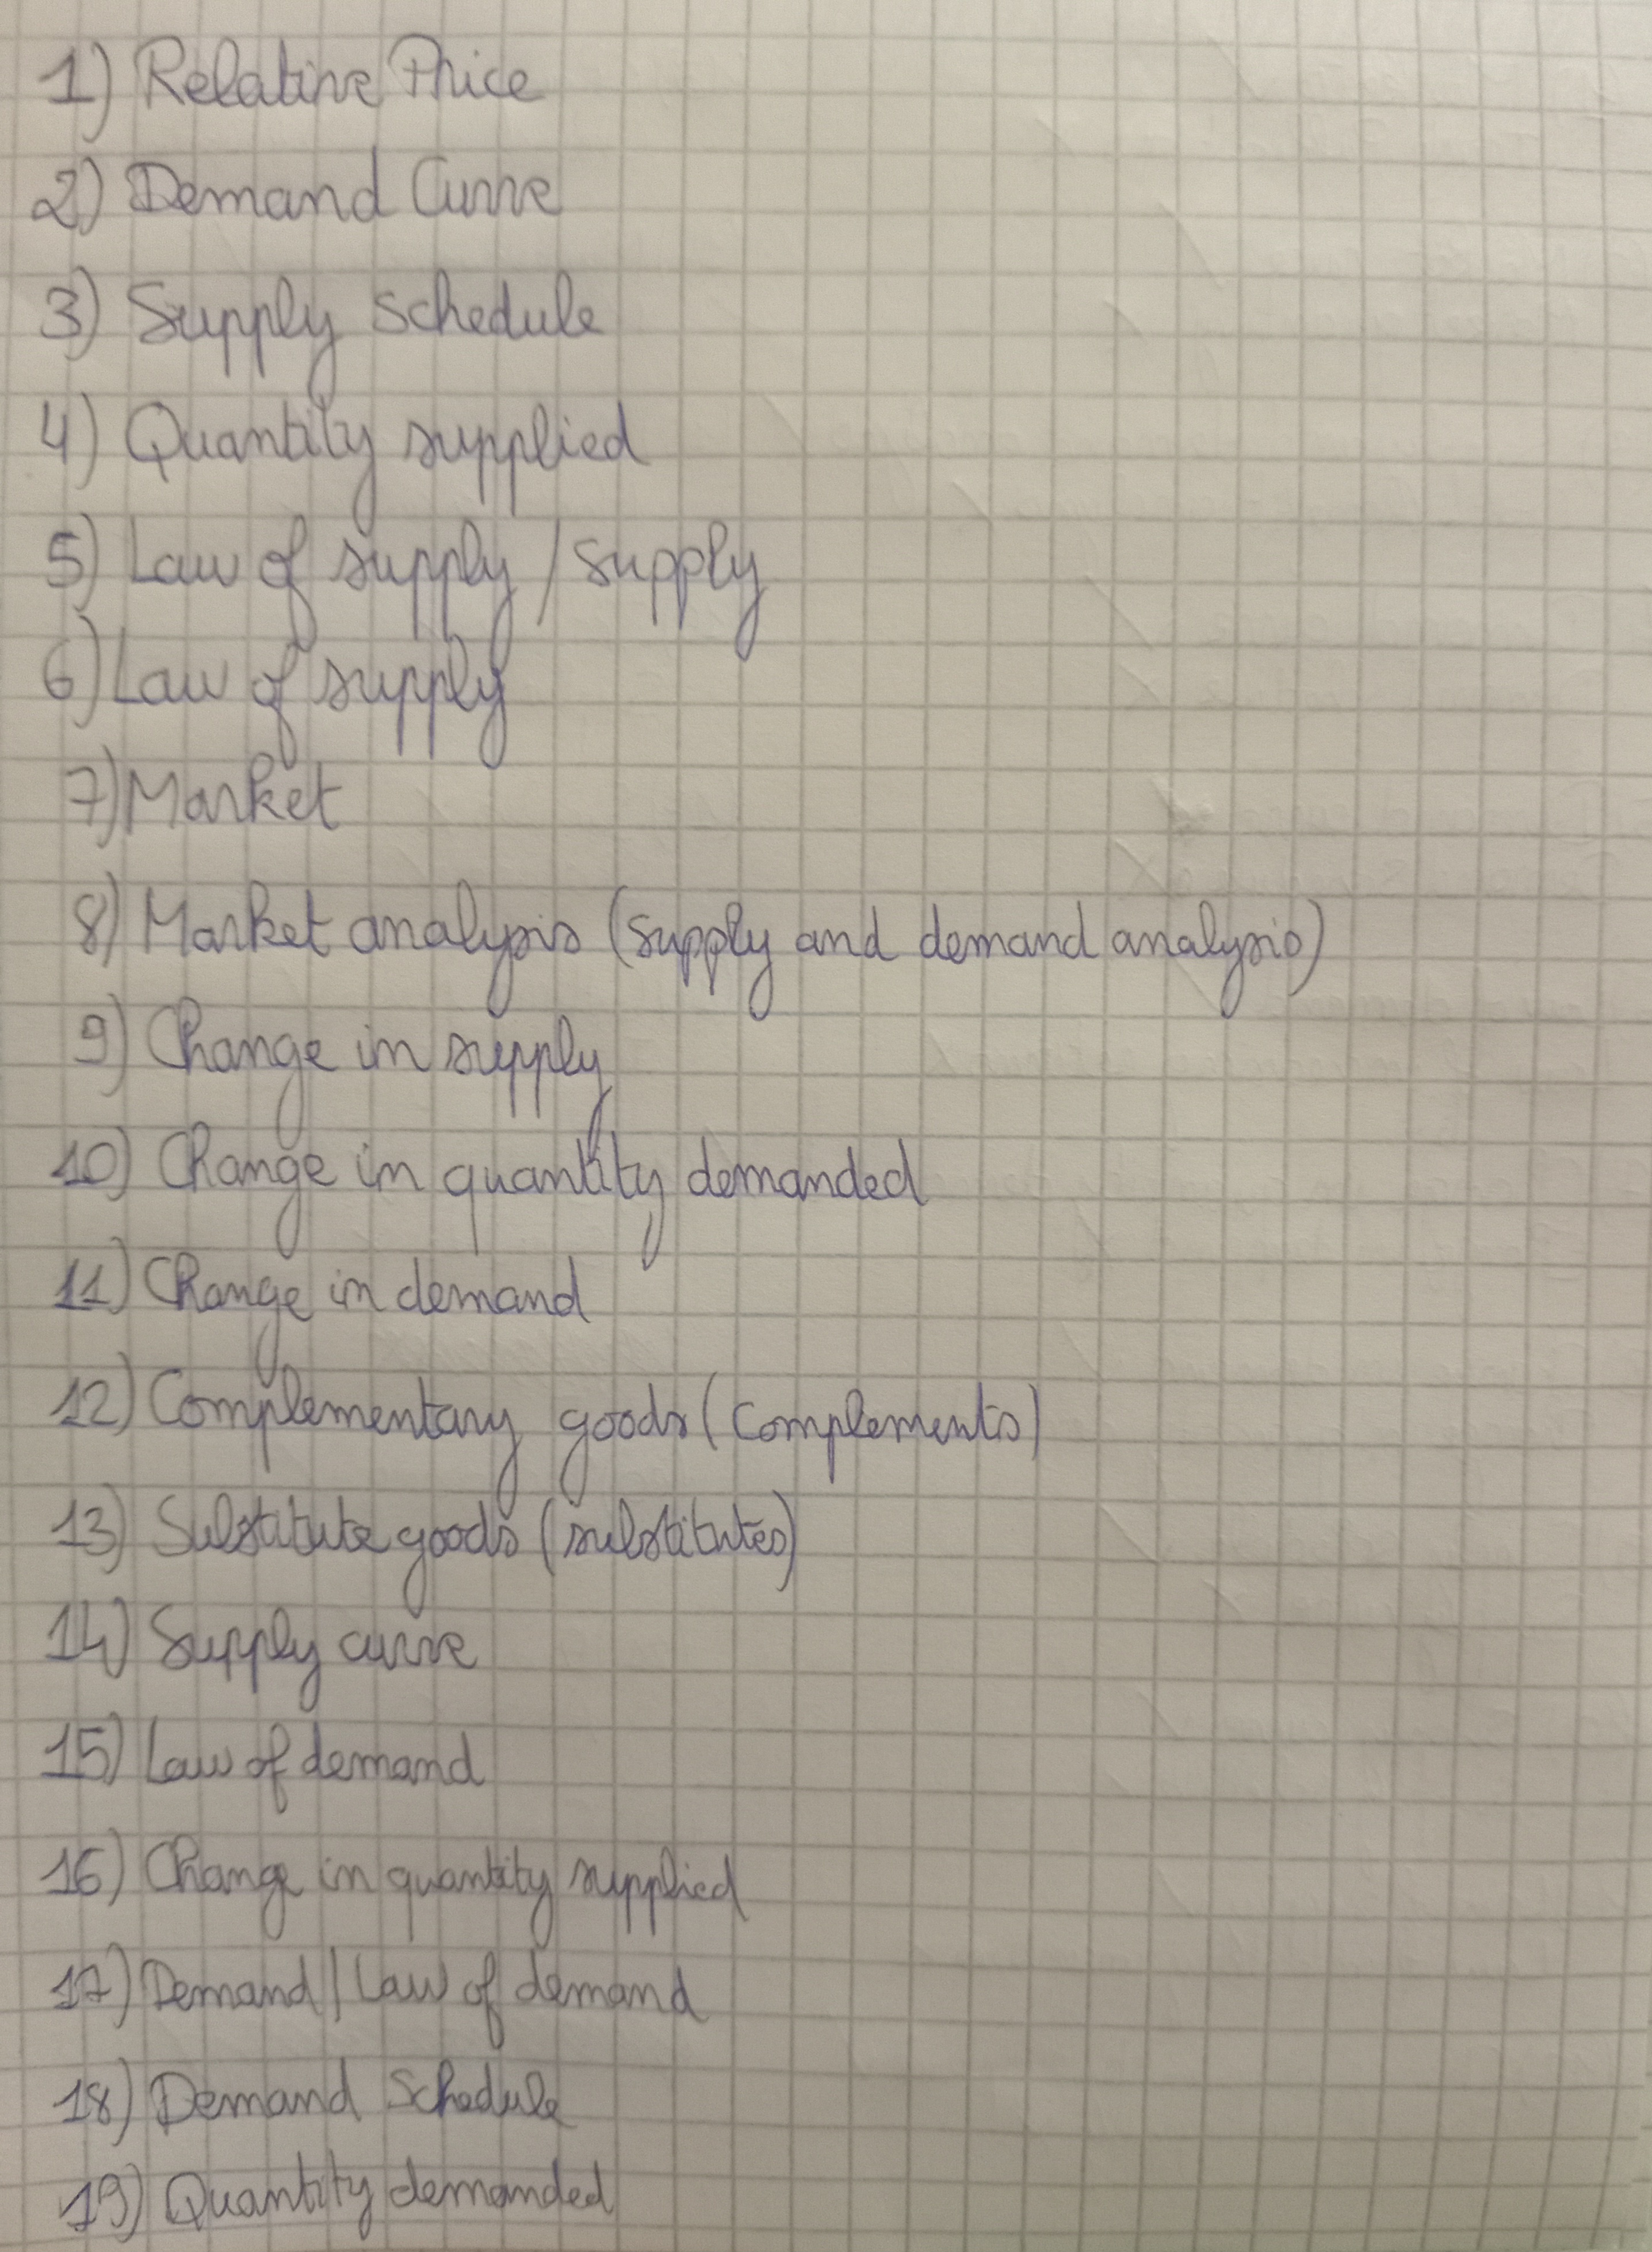 1) Relative Price
2) Demand Curve
3) Supply Schedule
4) Quantity supplied
5) Law of supply / Supply
6) Law of supply
7) Market
8) Market analysis (supply and demand analysis)
9) Change in supply
10) Change in quantity demanded
11) Change in demand
12) Complementary goods (complements)
13) Substitute goods (substitutes)
14) Supply curve
15) Law of demand
16) Change in quantity supplied
17) Demand / Law of demand
18) Demand Schedule
19) Quantity demanded